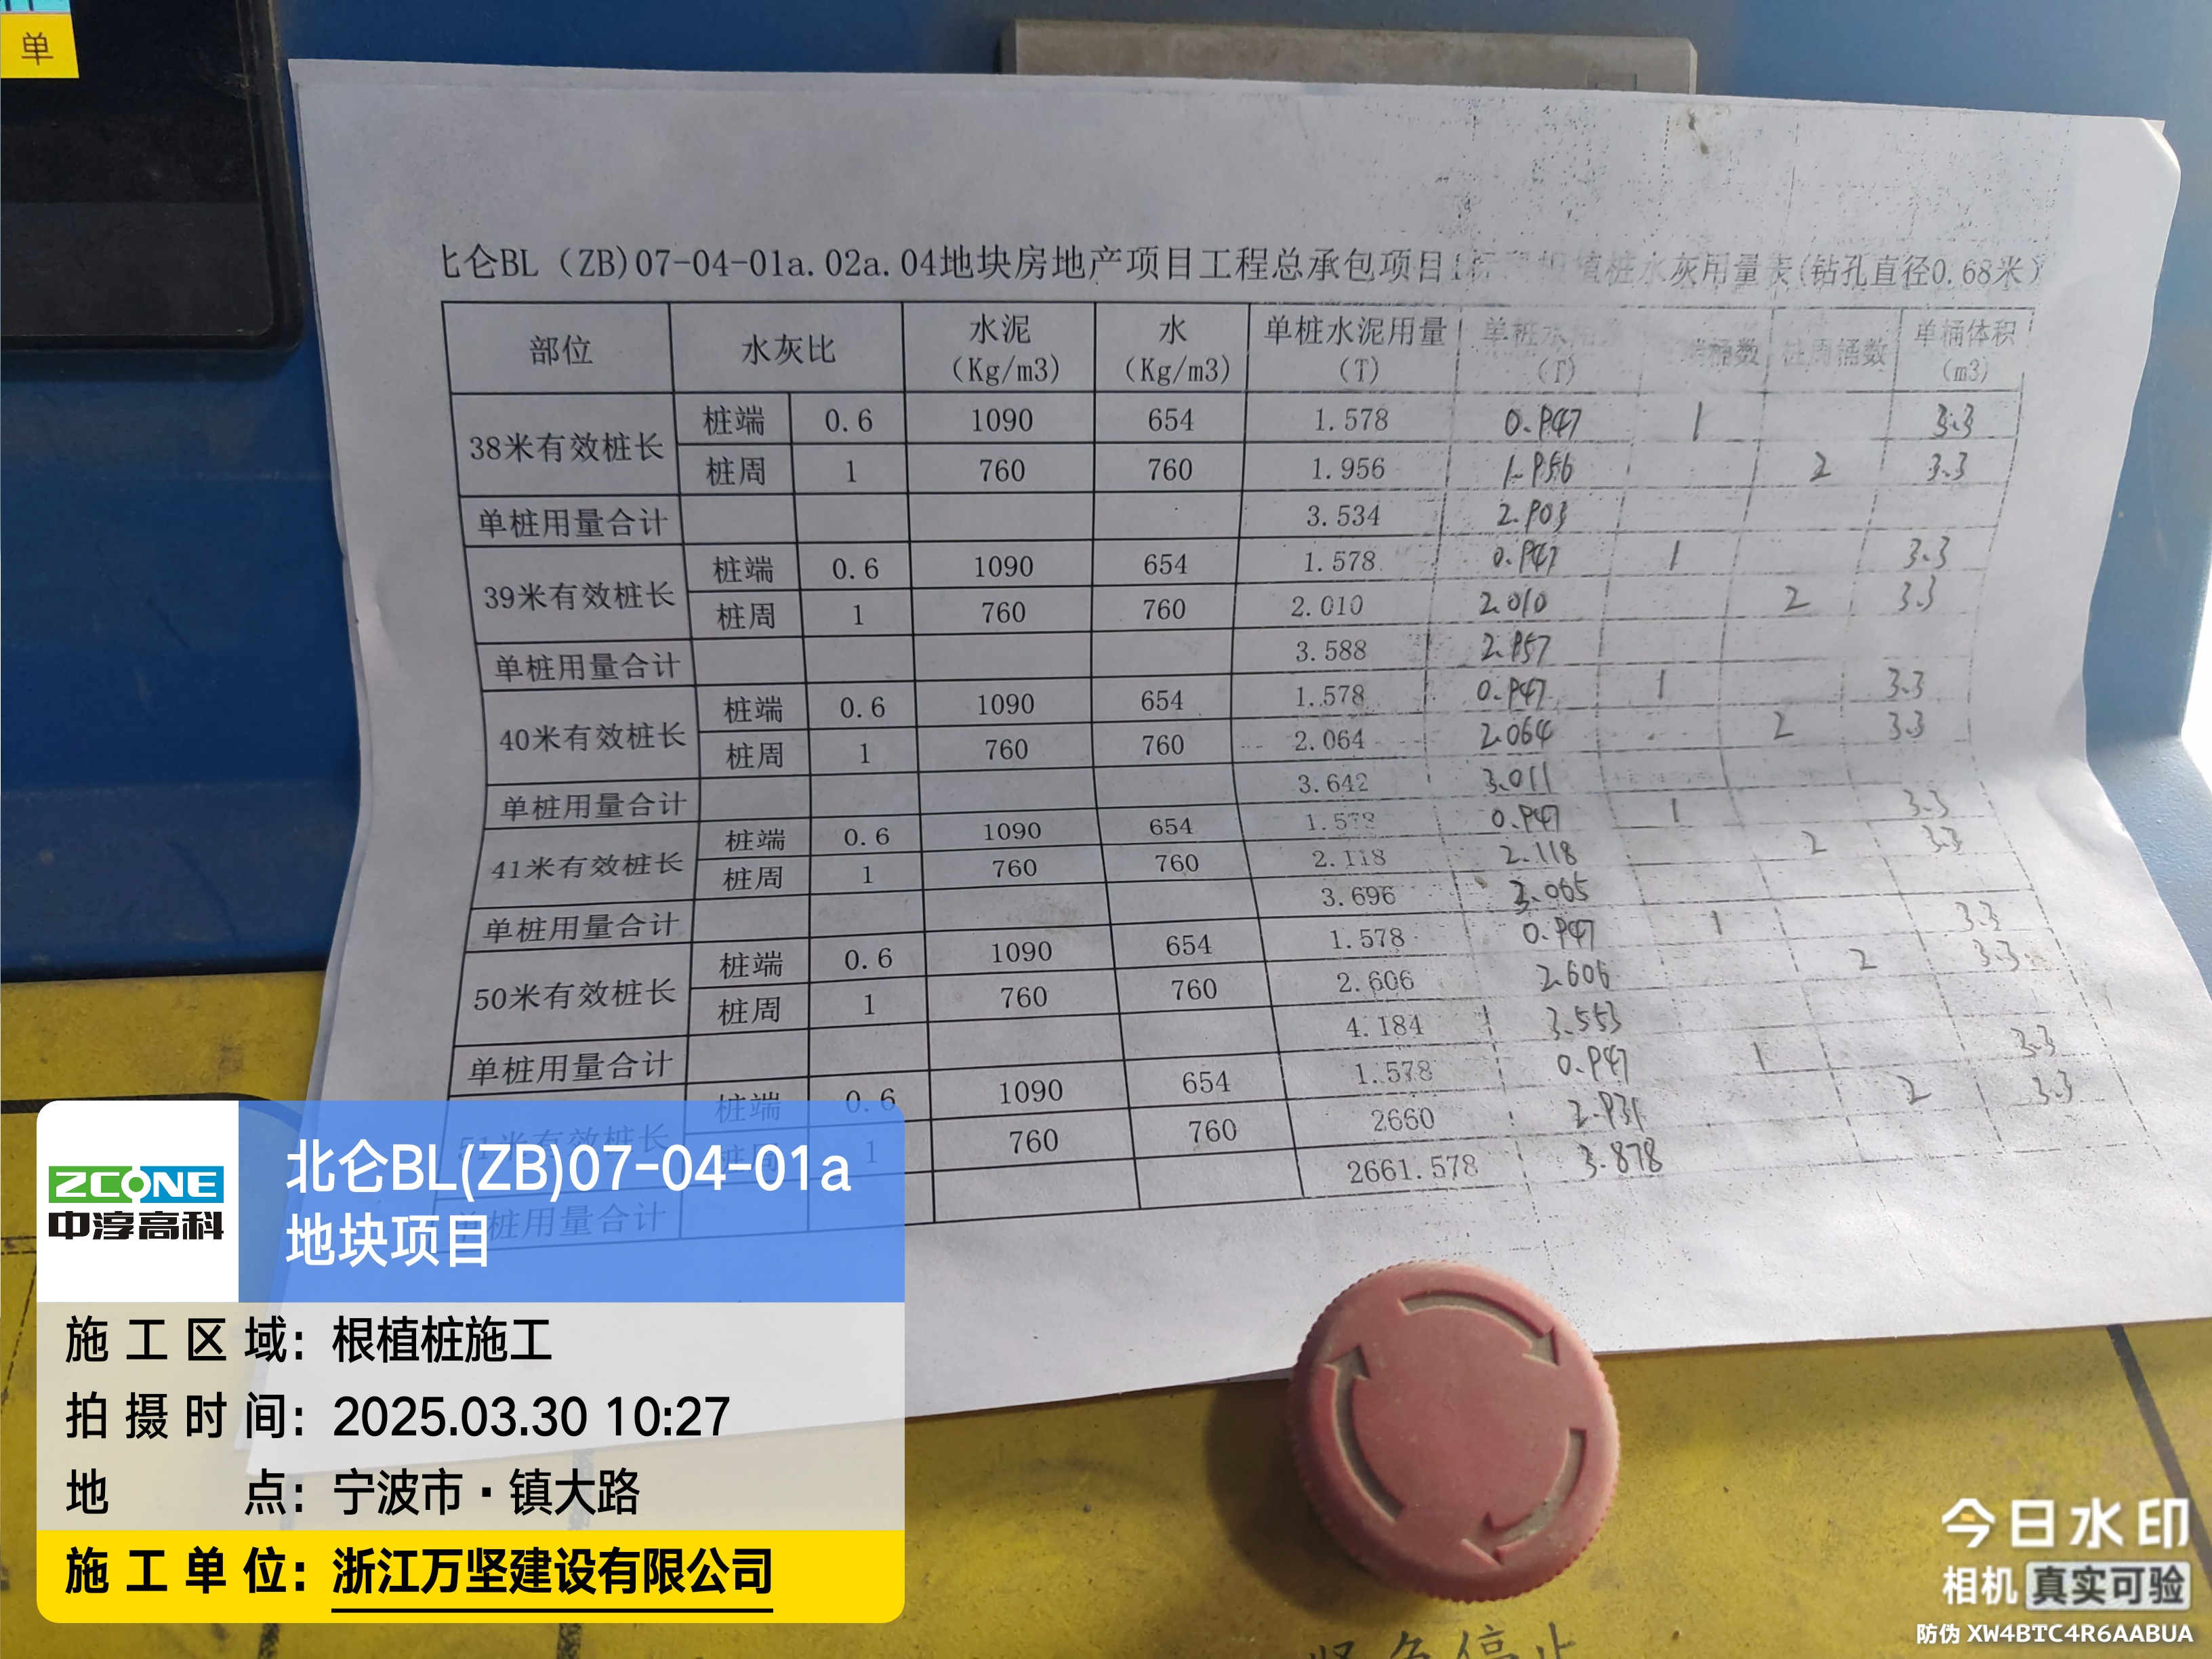 单
北仑BL（ZB)07-04-01a.02a.04地块房地产项目工程总承包项目 植桩水灰用量表(钻孔直径0.68米)
部位 水灰比 水泥（Kg/m3) 水（Kg/m3) 单桩水泥用量（T) 单桩水用量（T) 桶数 桩周桶数 单桶体积（m3)
38米有效桩长 桩端 0.6 1090 654 1.578 0.947 1 3.3
桩周 1 760 760 1.956 1.956 2 3.3
单桩用量合计 3.534 2.903
39米有效桩长 桩端 0.6 1090 654 1.578 0.947 1 3.3
桩周 1 760 760 2.010 2.010 2 3.3
单桩用量合计 3.588 2.957
40米有效桩长 桩端 0.6 1090 654 1.578 0.947 1 3.3
桩周 1 760 760 2.064 2.064 2 3.3
单桩用量合计 3.642 3.011
41米有效桩长 桩端 0.6 1090 654 1.578 0.947 1 3.3
桩周 1 760 760 2.118 2.118 2 3.3
单桩用量合计 3.696 3.065
50米有效桩长 桩端 0.6 1090 654 1.578 0.947 1 3.3
桩周 1 760 760 2.606 2.606 2 3.3
单桩用量合计 4.184 3.553
51米有效桩长 桩端 0.6 1090 654 1.578 0.947 1 3.3
桩周 1 760 760 2660 2.931 2 3.3
单桩用量合计 2661.578 3.878
ZCONE
中淳高科
北仑BL(ZB)07-04-01a
地块项目
施工区域：根植桩施工
拍摄时间：2025.03.30 10:27
地点：宁波市·镇大路
施工单位：浙江万坚建设有限公司
紧急停止
今日水印
相机 真实可验
防伪 XW4BTC4R6AABUA